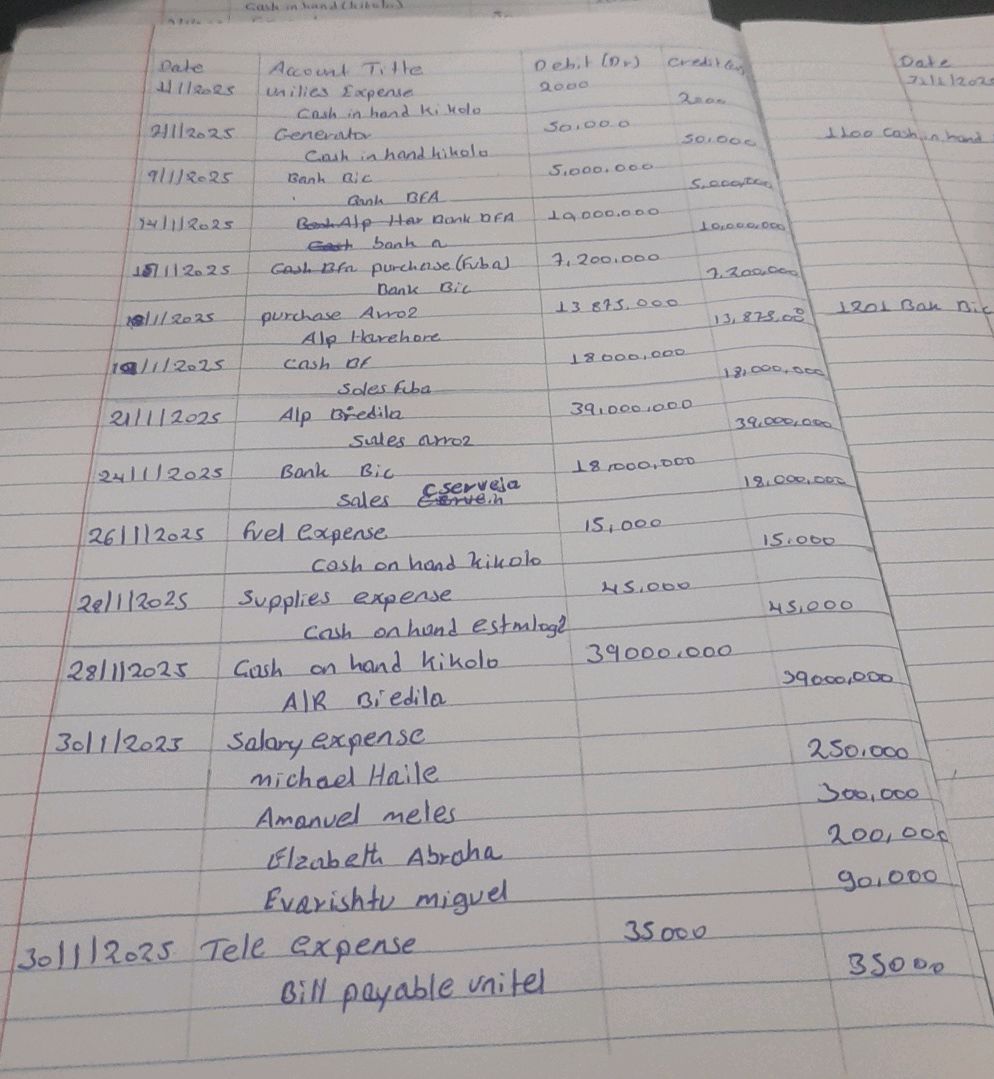 Cash in hand (kikolo)
Date Account Title Debit (Dr) Credit (Cr)
1/1/2025 Unilies Expense 2000
Cash in hand Kikolo 2000
2/1/2025 Generator 50.000
Cash in hand kikolo 50.000
9/1/2025 Bank Bic 5,000.000
Bank BFA 5,000,000
14/1/2025 Alp Har Bank BFA 10,000.000
bank a 10,000,000
15/1/2025 Cash Bfa purchase (Fuba) 7,200.000
Bank Bic 7,200,000
18/1/2025 purchase Arroz 13 875.000
Alp Harehore 13,875.00
19/1/2025 Cash Bf 18 000,000
Sales fuba 18,000,000
21/1/2025 Alp Biedila 39,000,000
Sales arroz 39,000,000
24/1/2025 Bank Bic 18,000,000
Sales Cserveja 18,000,000
26/1/2025 fuel Expense 15,000
Cash on hand kikolo 15.000
28/1/2025 Supplies expense 45,000
Cash on hand 45,000
28/1/2025 Cash on hand kikolo 39000.000
A/R Biedila 39000,000
30/1/2025 Salary expense
michael Haile 250.000
Amanuel meles 300,000
Elzabeth Abraha 200,000
Evarishtu miguel 90,000
30/1/2025 Tele expense 35000
Bill payable unitel 35000
Date
1100 Cash in hand
1201 Bak Bic